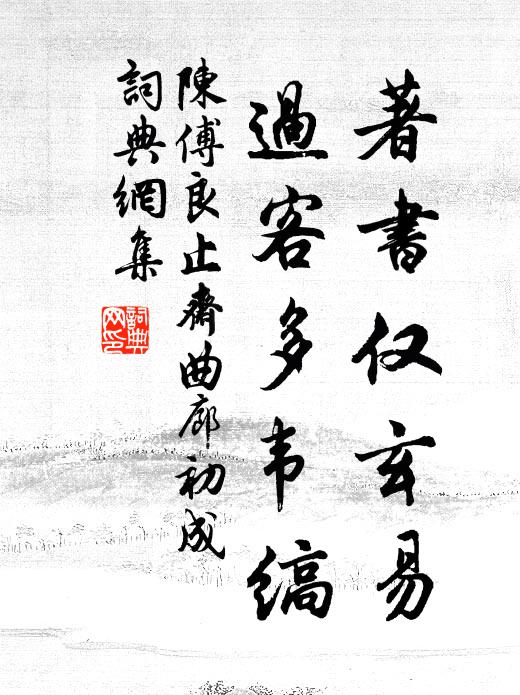 著書仅玄易
過客多韦縞
陳傅良止齋曲廊初成
詞典網集
詞典网印